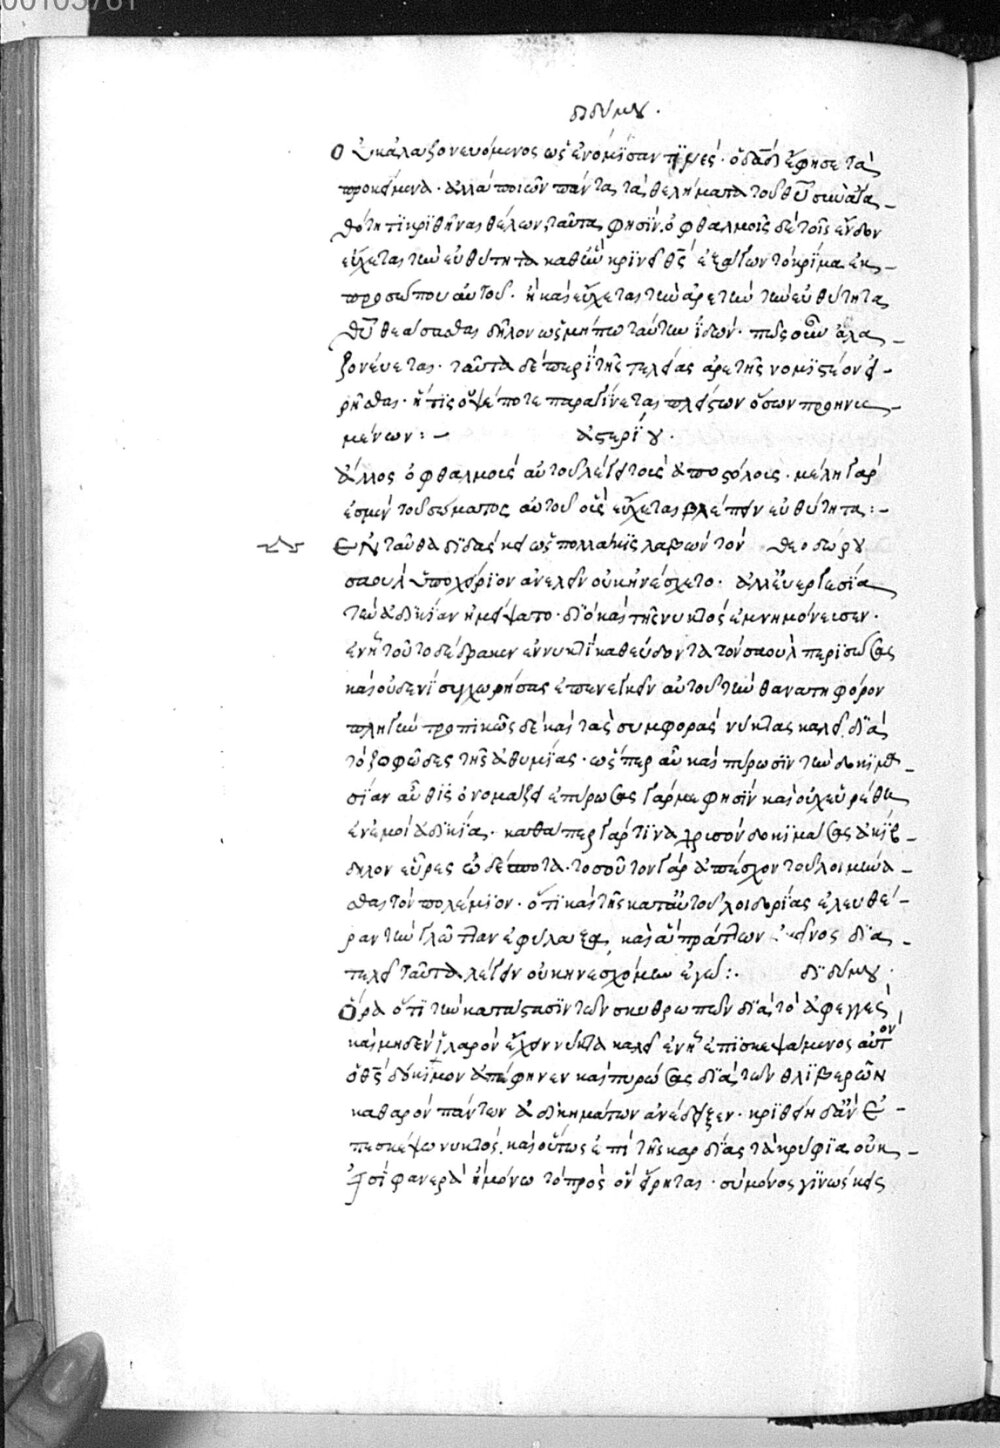 διδύμου.
Οὐκ ἀλαζονευόμενος ὡς ἐνόμισαν τινες. ὁ δαδ ἔφησε τὰ
προκείμενα. ἀλλὰ ποιῶν πάντα τὰ θελήματα τοῦ θυ σὺν ἀγα_
θότητι κριθῆναι θέλων, ταῦτα φησίν. ὀφθαλμοῖς δὲ τοῖς ἔνδον
εὔχεται τὴν εὐθύτητα καθ' ἣν κρίνει θς ἐξάγων τὸ κρίμα ἐκ_
προσώπου αὐτοῦ. ἢ καὶ εὔχεται τὴν ἀρετὴν τὴν εὐθύτητα
θυ θεάσασθαι δῆλον ὡς μήπω ταύτην ἰδών. πῶς οὖν ἀλα_
ζονεύεται. ταῦτα δὲ περὶ τῆς τελείας ἀρετῆς νομιστέον εἰ_
ρῆσθαι. ἥτις ὀψέ ποτε παραγίνεται πλείστων ὅσων προηνυ_
μένων:– ἀστερίου.
ἄλλος ὀφθαλμοὺς αὐτοῦ λέγει τοὺς ἀποστόλους. μέλη γάρ
ἐσμεν τοῦ σώματος αὐτοῦ οἷς εὔχεται βλέπειν εὐθύτητα:–
Ἐνταῦθα διδάσκει ὡς πολλάκις λαβὼν τὸν θεοδώρου
σαοὺλ ὑποχείριον ἀνελεῖν οὐκ ἠνέσχετο. ἀλλ' εὐεργεσία
τὴν ἀδικίαν ἠμείψατο. διὸ καὶ τῆς νυκτὸς ἐμνημόνευσεν.
ἐν ᾗ τοῦτο δέδρακεν ἐν νυκτὶ καθεύδοντα τὸν σαοὺλ περισώσας
καὶ οὐδενὶ συγχωρήσας ἐπενεγκεῖν αὐτοῦ τὴν θανατηφόρον
πληγὴν τροπικῶς δὲ καὶ τὰς συμφορὰς νύκτας καλεῖ διὰ
τὸ ζοφῶδες τῆς ἀθυμίας. ὥσπερ αὖ καὶ πύρωσιν τὴν δοκιμα_
σίαν αὖθις ὀνομάζει ἐπύρωσας γάρ με φησὶν καὶ οὐχ εὑρέθη
ἐν ἐμοὶ ἀδικία. καθάπερ γάρ τινα χρυσὸν δοκιμάσας ἀκίβ_
δηλον εὗρες ὦ δέσποτα. τοσοῦτον γὰρ ἀπέσχον τοῦ λοιμανα_
σθαι τὸν πολέμιον. ὅτι καὶ τῆς κατ' αὐτοῦ λοιδορίας ἐλευθέ_
ραν τὴν γλῶτταν ἐφύλαξα, καὶ ἃ πράττων ἐκεῖνος δια_
τελεῖ ταῦτα λέγειν οὐκ ἠνεσχόμην ἐγώ:. διδύμου.
Ὅρα ὅτι τὴν κατάστασιν τῶν σκυθρωπῶν διὰ τὸ ἀφεγγὲς
καὶ μηδὲν ἱλαρὸν ἔχειν νύκτα καλεῖ ἐν ᾗ ἐπισκεψάμενος αὐτὸν
ὁ θς δόκιμον ἀπέφηνεν καὶ πυρώσας διὰ τῶν θλιβερῶν
καθαρὸν πάντων ἀδικημάτων ἀνέδειξεν. κριθείη δ' ἂν ἐ_
πεσκέψω νυκτός. καὶ οὕτως ἐπὶ τῆς καρδίας τὰ κρύφια οὐκ_
εἰσὶ φανερὰ ἢ μόνω τῶ πρὸς ὃν εἴρηται. σὺ μόνος γινώσκεις